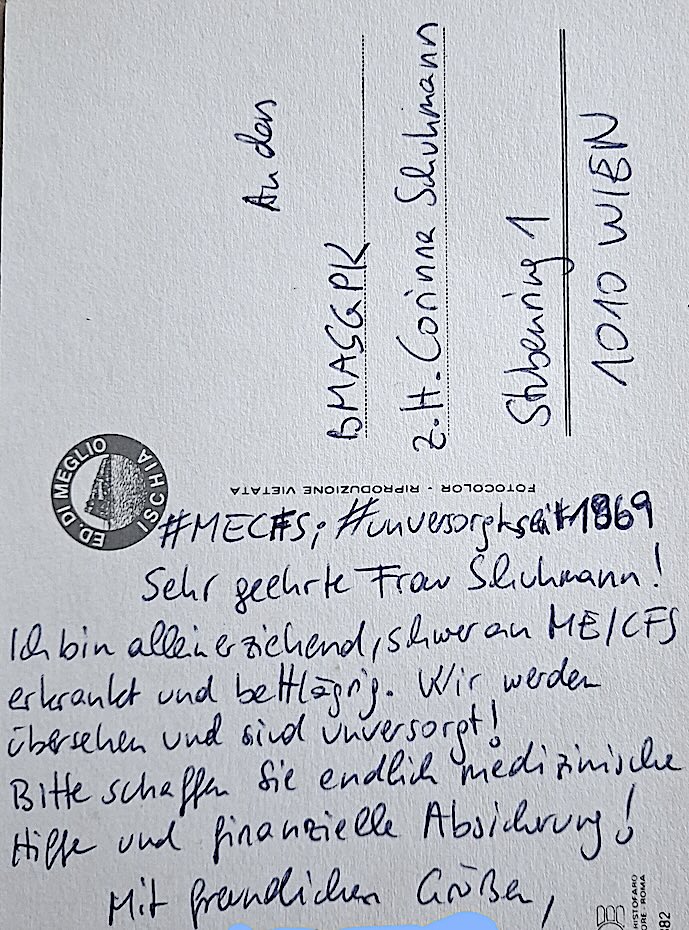 An das
BMASGPK
z.H. Corinna Schuhmann
Stubenring 1
1010 WIEN
ED DI MEGLIO
ISCHIA
FOTOCOLOR - RIPRODUZIONE VIETATA
#MECFS; #unversorgtseit1969
Sehr geehrte Frau Schuhmann!
Ich bin alleinerziehend, schwer an ME/CFS
erkrankt und bettlägrig. Wir werden
übersehen und sind unversorgt!
Bitte schaffen Sie endlich medizinische
Hilfe und finanzielle Absicherung!
Mit freundlichen Grüßen,
RISTOFARO
ORE · ROMA
382